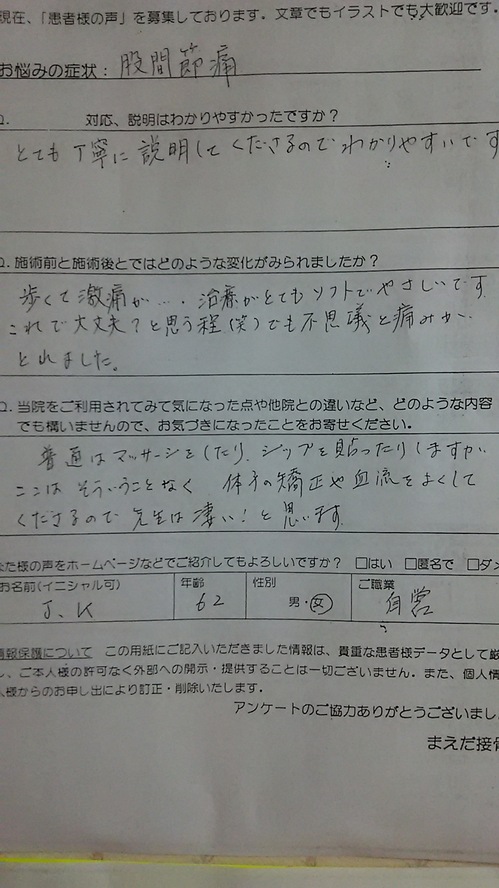 現在、「患者様の声」を募集しております。文章でもイラストでも大歓迎です。
お悩みの症状：股間節痛
Q. 対応、説明はわかりやすかったですか？
とても丁寧に説明してくださるのでわかりやすいです
Q. 施術前と施術後とではどのような変化がみられましたか？
歩くて激痛が…. 治療がとてもソフトでやさしいです
これで大丈夫？と思う程(笑)でも不思議と痛みが
とれました。
Q. 当院をご利用されてみて気になった点や他院との違いなど、どのような内容
でも構いませんので、お気づきになったことをお寄せください。
普通はマッサージをしたり、シップを貼ったりしますが
ここは そういうことなく 体子の矯正や血流をよくして
くださるので 先生は凄い！と思います
なた様の声をホームページなどでご紹介してもよろしいですか？ □はい □匿名で □ダメ
お名前(イニシャル可) 年齢 性別 ご職業
J.K 62 男・女 自営
情報保護について この用紙にご記入いただきました情報は、貴重な患者様データとして厳
し、ご本人様の許可なく外部への開示・提供することは一切ございません。また、個人情
人様からのお申し出により訂正・削除いたします。
アンケートのご協力ありがとうございまし
まえだ接骨